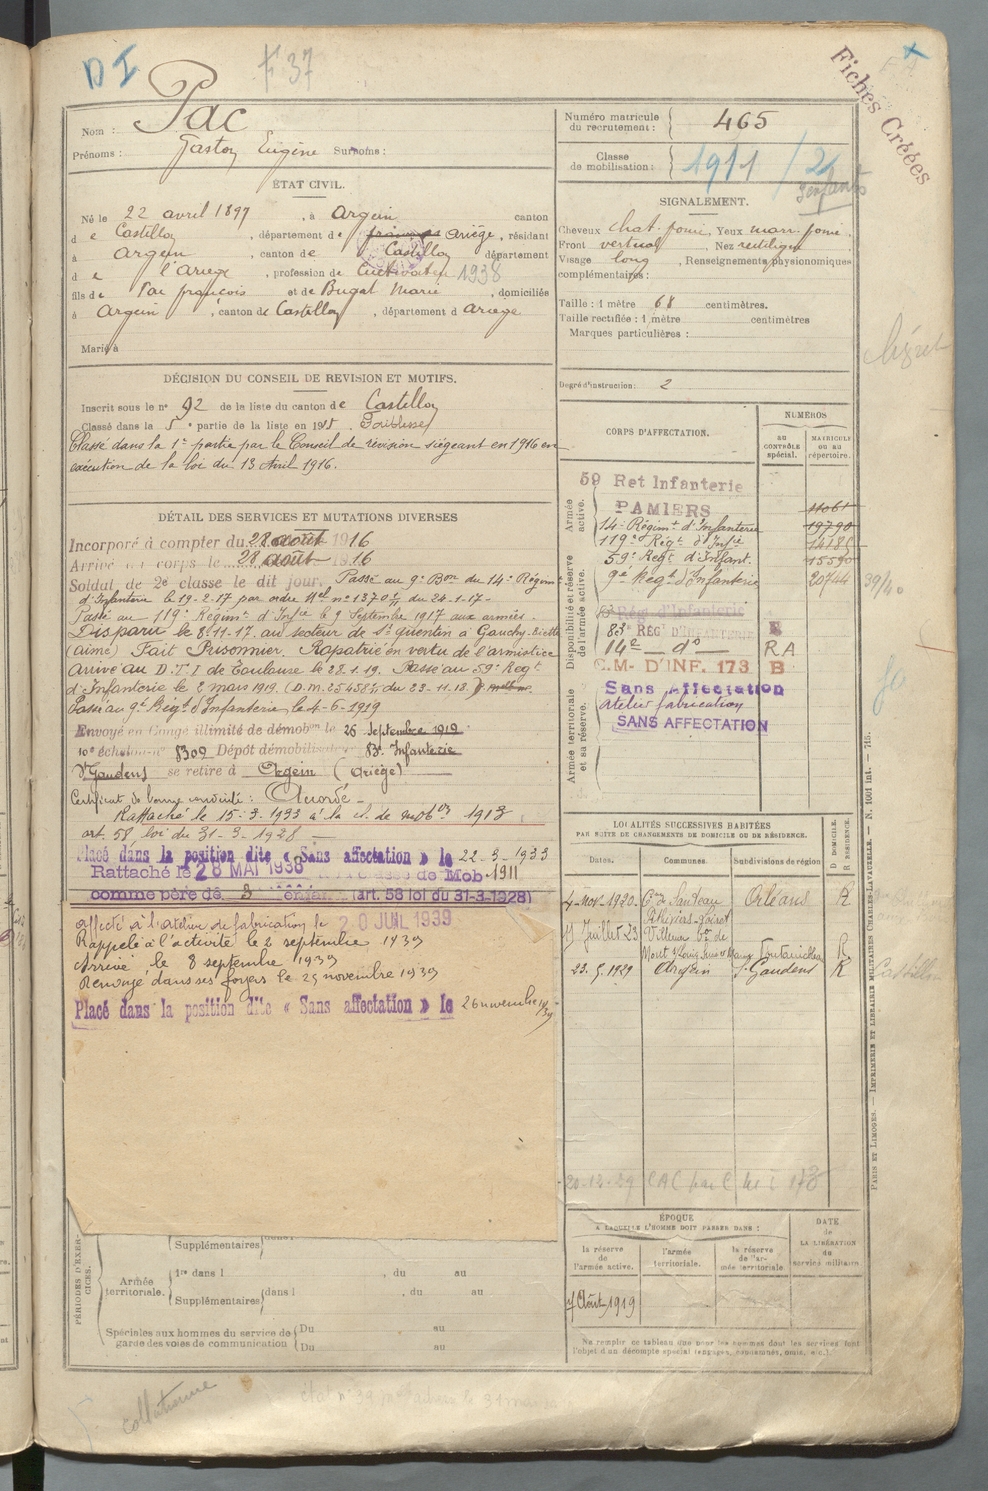 D I
F 37
Fiches Créées
Nom : Pac
Prénoms : Gaston Eugène Surnoms :
Numéro matricule du recrutement : 465
Classe de mobilisation : 1911 / 21
3 enfants
ÉTAT CIVIL.
Né le 22 avril 1897, à Argein canton
de Castillon, département de Ariège, résidant
à Argein, canton de Castillon département
de l'Ariège, profession de Cultivateur 1938
fils de Pac françois et de Bugat Marie, domiciliés
à Argein, canton de Castillon, département d Ariège
Marié à
SIGNALEMENT.
Cheveux chat. foncé, Yeux marr. foncé.
Front vertical, Nez rectiligne
Visage long, Renseignements physionomiques
complémentaires :
Taille : 1 mètre 68 centimètres.
Taille rectifiée : 1 mètre centimètres
Marques particulières :
Degré d'instruction : 2
DÉCISION DU CONSEIL DE REVISION ET MOTIFS.
Inscrit sous le n° 92 de la liste du canton de Castillon
Classé dans la 5e partie de la liste en 1915 Faiblesse
Classé dans la 1e partie par le Conseil de révision siégeant en 1916 en
exécution de la loi du 13 Avril 1916.
DÉTAIL DES SERVICES ET MUTATIONS DIVERSES
Incorporé à compter du 28 août 1916
Arrivé au corps le 28 août 1916
Soldat de 2e classe le dit jour. Passé au 9e Bon du 14e Régimt
d'Infanterie le 19-2-17 par ordre Mel n° 1370 du 24-1-17-
Passé au 119e Régimt d'Infie le 9 Septembre 1917 aux armées.
Disparu le 8-11-17 au secteur de St Quentin à Gauchy
(Aisne) Fait Prisonnier. Rapatrié en vertu de l'armistice
Arrivé au D.T.I de Toulouse le 28.1.19. Passé au 59e Regt
d'Infanterie le 2 mars 1919. (D.M. 25458 du 23-11-18.
Passé au 9e Regt d'Infanterie le 4-6-1919
Envoyé en Congé illimité de démobon le 26 Septembre 1919
10e échelon n° 8309 Dépôt démobilisateur 83e Infanterie
St Gaudens se retire à Argein (Ariège)
Certificat de bonne conduite : Accordé -
Rattaché le 15-3-1933 à la cl. de mobon 1913
art. 58, loi du 31-3-1928 -
Placé dans la position dite « Sans affectation » le 22-3-1933
Rattaché le 28 MAI 1938 à la Classe de Mob 1911
comme père de 3 enfants (art. 58 loi du 31-3-1928)
affecté à l'atelier de fabrication le 20 JUIL 1939
Rappelé à l'activité le 2 septembre 1939
Arrivé le 8 septembre 1939
Renvoyé dans ses foyers le 25 novembre 1939
Placé dans la position dite « Sans affectation » le 26 novembre 1939
CORPS D'AFFECTATION.
NUMÉROS
AU CONTRÔLE spécial.
MATRICULE OU AU répertoire.
Armée active.
59 Ret Infanterie
PAMIERS 11061
14e Régimt d'Infanterie 19790
119e Régt d'Infie 14185
59e Regt d'Infant. 15590
9e Regt d'Infanterie 20744
39/40
Disponibilité et réserve de l'armée active.
83e Rég d'Infanterie
83e RÉG D'INFANTERIE E
14e - do - RA
C.M- D'INF. 173 B
Armée territoriale et sa réserve.
Sans affectation
Atelier fabrication
SANS AFFECTATION
LOCALITÉS SUCCESSIVES HABITÉES
PAR SUITE DE CHANGEMENTS DE DOMICILE OU DE RÉSIDENCE.
Dates. Communes. Subdivisions de région
D DOMICILE. R RÉSIDENCE.
4-Nov-1920 Orléans R
Juillet 23 R
23.5.1929 Argein St Gaudens R
20-12-29
ÉPOQUE
A LAQUELLE L'HOMME DOIT PASSER DANS :
la réserve de l'armée active.
l'armée territoriale.
la réserve de l'armée territoriale
DATE de LA LIBÉRATION du service militaire
Août 1919
Ne remplir ce tableau que pour les hommes dont les services font
l'objet d'un décompte spécial (engagés, condamnés, omis, etc.).
PÉRIODES D'EXERCICES.
Supplémentaires
Armée territoriale.
1re dans l , du au
Supplémentaires dans l , du au
Spéciales aux hommes du service de garde des voies de communication
Du au
Du au
PARIS ET LIMOGES. — IMPRIMERIE ET LIBRAIRIE MILITAIRES CHARLES-LAVAUZELLE. — N. 1001 int. — 715.
Castillon
collationné